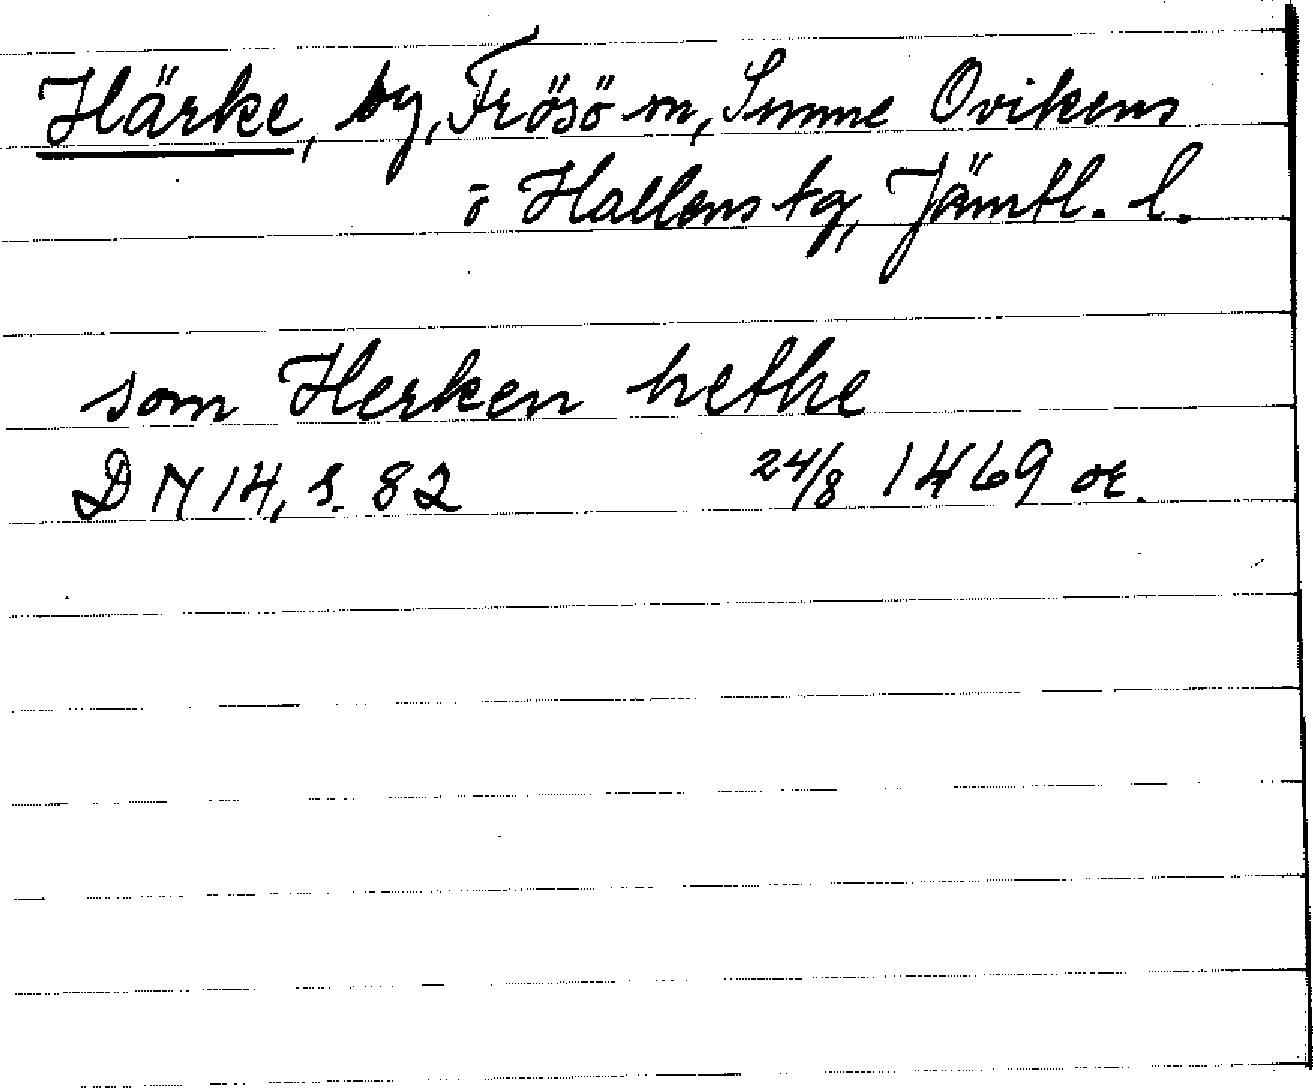 Härke, by, Frösö sn, Sunne Ovikens
o Hallens tg, Jämtl. l.
som Herken hethe
DN 14, s. 82 24/8 1469 or.